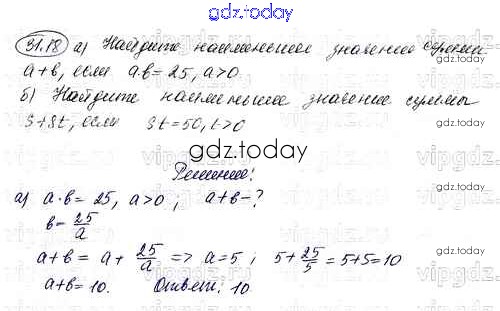 gdz.today
31.18 а) Найдите наименьшее значение суммы
a+b, если a·b=25, a>0
б) Найдите наименьшее значение суммы
s+8t, если st=50, t>0
gdz.today
Решение:
а) a·b=25, a>0; a+b-?
b=25/a
a+b= a+ 25/a => a=5; 5+25/5=5+5=10
a+b=10. Ответ: 10
gdz.today